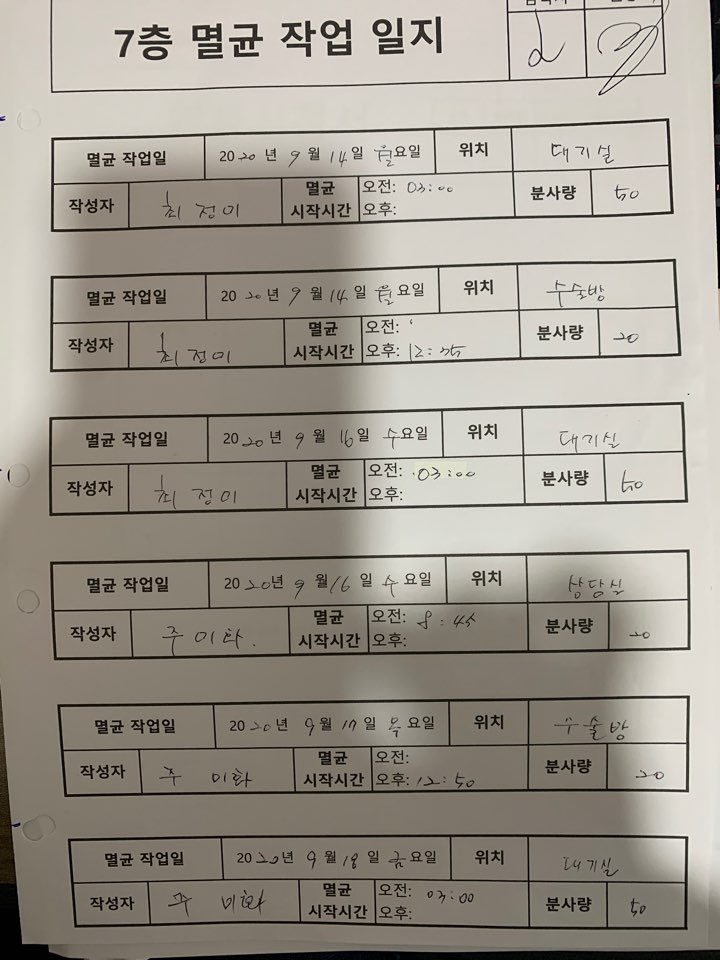 7층 멸균 작업 일지
멸균 작업일 2020년 9월 14일 월요일 위치 대기실
작성자 최정미 멸균 시작시간 오전: 03:00 분사량 50
오후:
멸균 작업일 2020년 9월 14일 월요일 위치 수술방
작성자 최정미 멸균 시작시간 오전: 분사량 20
오후: 12:35
멸균 작업일 2020년 9월 16일 수요일 위치 대기실
작성자 최정미 멸균 시작시간 오전: 03:00 분사량 50
오후:
멸균 작업일 2020년 9월 16일 수요일 위치 상담실
작성자 주미화 멸균 시작시간 오전: 8:45 분사량 20
오후:
멸균 작업일 2020년 9월 17일 목요일 위치 수술방
작성자 주미화 멸균 시작시간 오전: 분사량 20
오후: 12:50
멸균 작업일 2020년 9월 18일 금요일 위치 대기실
작성자 주미화 멸균 시작시간 오전: 03:00 분사량 50
오후: